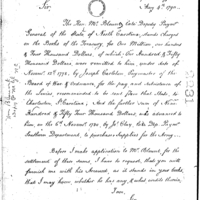 May 6th 1790.
Sir,
The Revd Mr Blount, late Deputy Paymr
General of the State of North Carolina, stands charged
on the Books of the Treasury, for One Million, one hundred
Four thousand Dollars, of which, Four Hundred & Fifty
Thousand Dollars, were committed to him, under date of
Novemr 12th 1778, by Joseph Carleton, Secretary of the
Board of War & Ordnance, for the pay and subsistence of the
Troops, recommended to be sent from that State to
Charleston, And the further sum of
Hundred & Fifty Four Thousand Dollars, was advanced to
him on the 6th Novemr 1780, by Jos Clay, late Dep. Paymr
Southern Department, to purchase Supplies for the Army.
Before I make application to Mr Blount for the
settlement of these sums, I have to request, that you will
furnish me with his Account, as it stands in your books,
that I may know, whether he has any, & what credits therein,
I am,
Sir